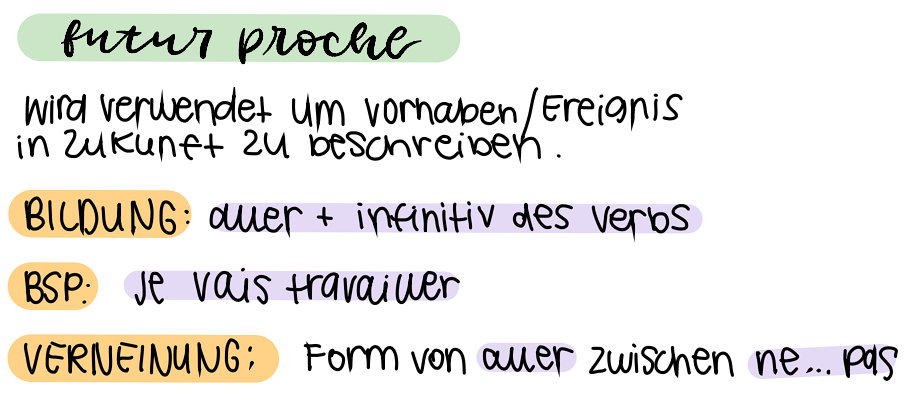 futur proche
wird verwendet um vorhaben/Ereignis
in Zukunft zu beschreiben.
BILDUNG: aller + infinitiv des verbs
BSP: Je vais travailler
VERNEINUNG: Form von aller zwischen ne... pas